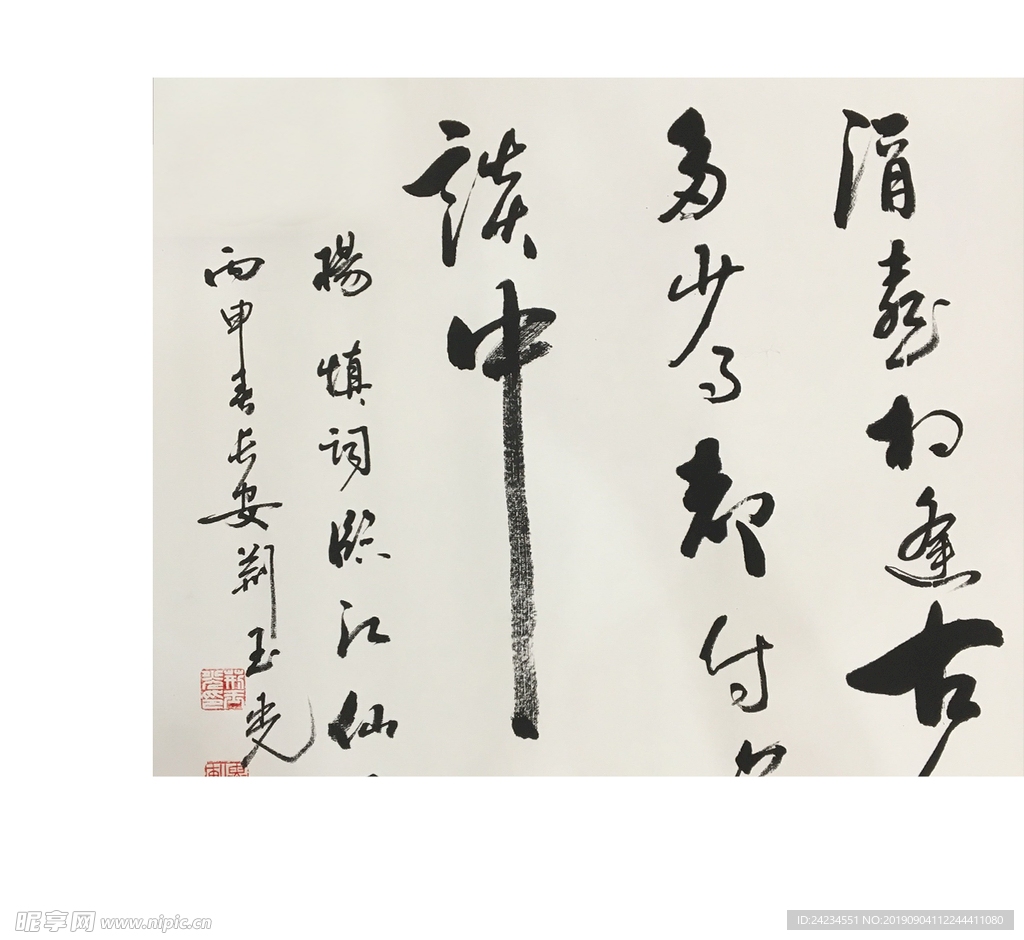 酒喜相逢古
多少事都付
談中
楊慎詞臨江仙
丙申春長安荆玉
昵享网 www.nipic.cn
ID:24234551 NO:20190904112244411080